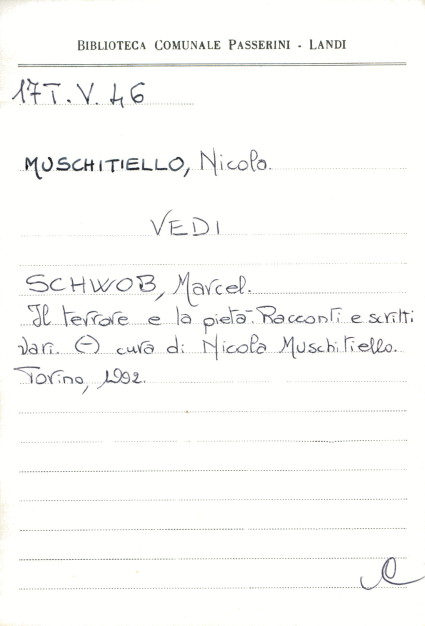 BIBLIOTECA COMUNALE PASSERINI - LANDI
17T.V.46
MUSCHITIELLO, Nicola.
VEDI
SCHWOB, Marcel.
Il terrore e la pietà. Racconti e scritti
vari. (-) cura di Nicola Muschitiello.
Torino, 1992.